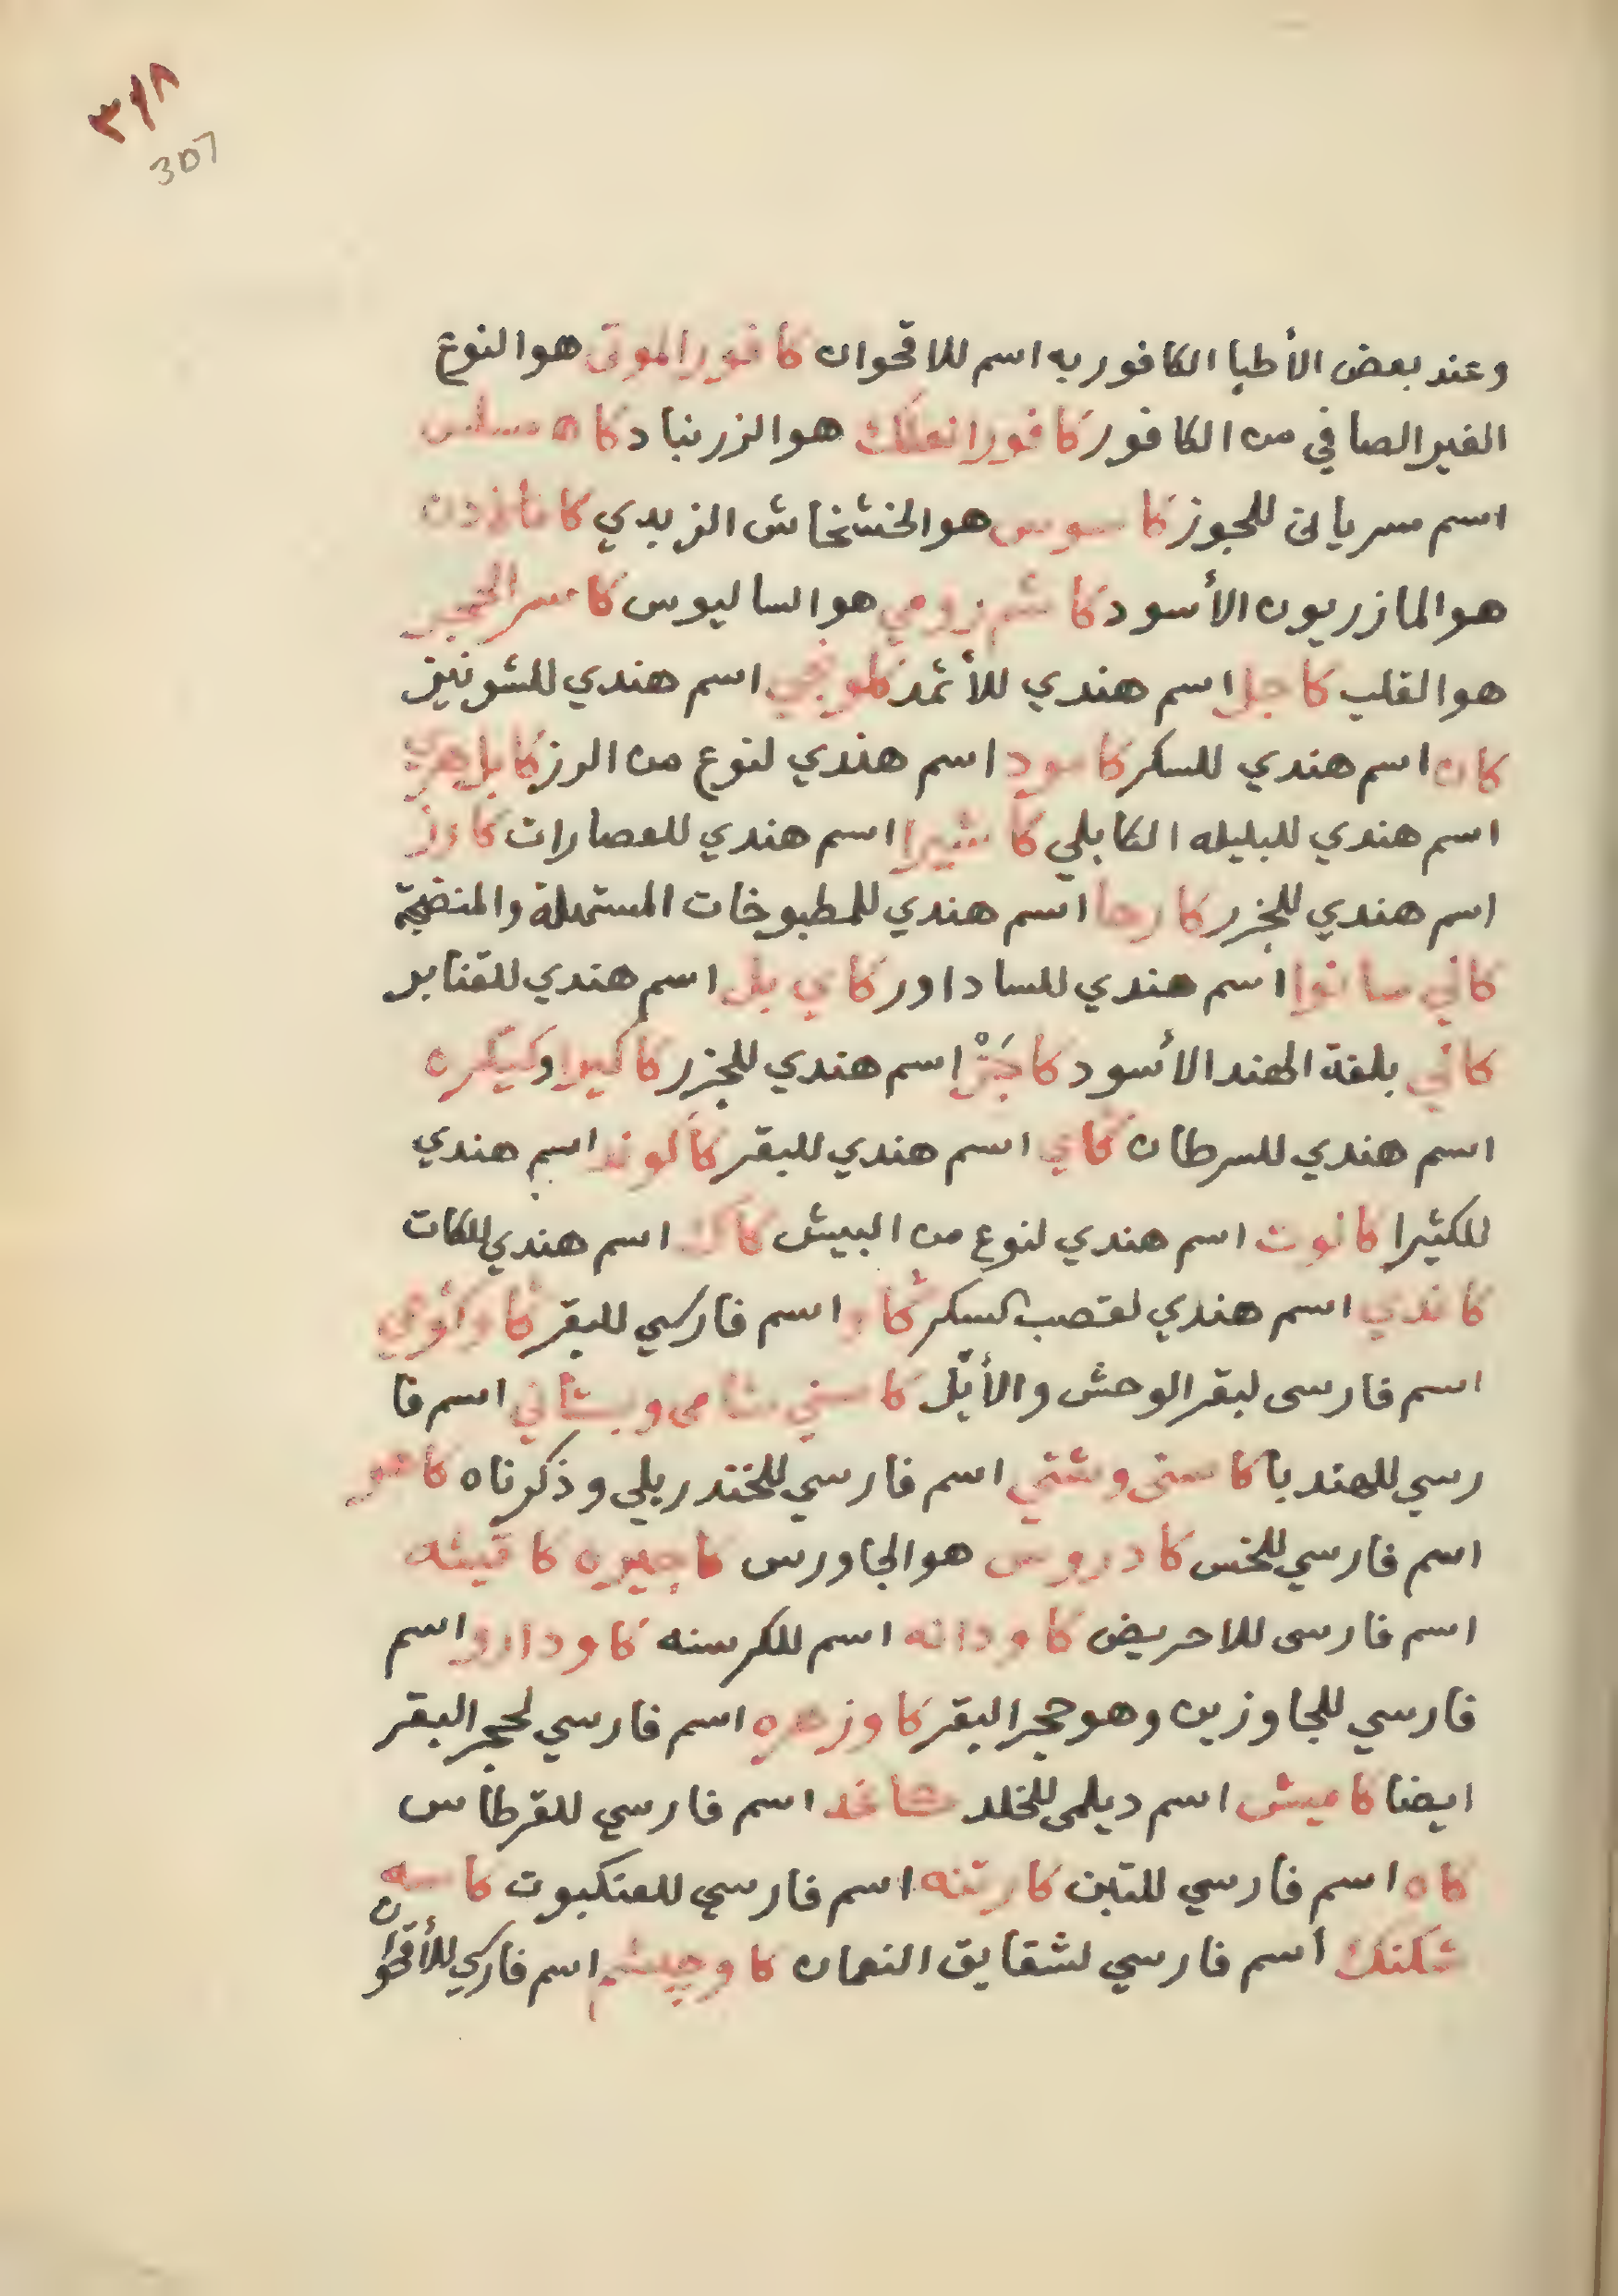 ٣٩٨
307
وعند بعض الأطبا الكافوريه اسم للاقحوان كافور الموتى هو النوع
الغير الصافي من الكافور كافور انعلك هو الزرنباد كاه
اسم سريانى للجوز كاسوس هو الخشخاش الزبدي
هو المازريون الأسود كاشم رومي هو الساليوس كاسر الحجر
هو القلب كاجل اسم هندي للأثمد كلونجي اسم هندي للشونيز
كان اسم هندي للسكر كاسود اسم هندي لنوع من الرز كابل هري
اسم هندي للبليله الكابلي كاشيرا اسم هندي للعصارات
اسم هندي للجزر كارها اسم هندي للمطبوخات المستعملة والمنضجة
كاني سانوا اسم هندي للساداور كاي بل اسم هندي للقنابر
كاني بلغة الهند الأسود كاجَرْ اسم هندي للجزر كاكيرا وكيكره
اسم هندي للسرطان كاي اسم هندي للبقر كالوند اسم هندي
للكثيرا كانوت اسم هندي لنوع من البيش كاك اسم هندي للكات
كاندي اسم هندي لقصب السكر كاو اسم فارسي للبقر كاوكوهي
اسم فارسى لبقر الوحش والأيّل كاسني شامى وبستاني اسم فا
رسي للهندبا كاسنى وشتي اسم فارسي للخندريلي وذكرناه كاهو
اسم فارسي للخس كادروس هو الجاورس كاجيره كاقيشه
اسم فارسى للاحريض كاودانه اسم للكرسنه كاودارو اسم
فارسي للجاوزين وهو حجر البقر كاوزهره اسم فارسي لحجر البقر
ايضا كاميش اسم ديلمى للخلد كاغد اسم فارسي للقرطاس
كاه اسم فارسي للتبن كارتنه اسم فارسي للعنكبوت كاسه
شكنك اسم فارسي لشقايق النعمان كاوچشم اسم فارسي للأقحوان